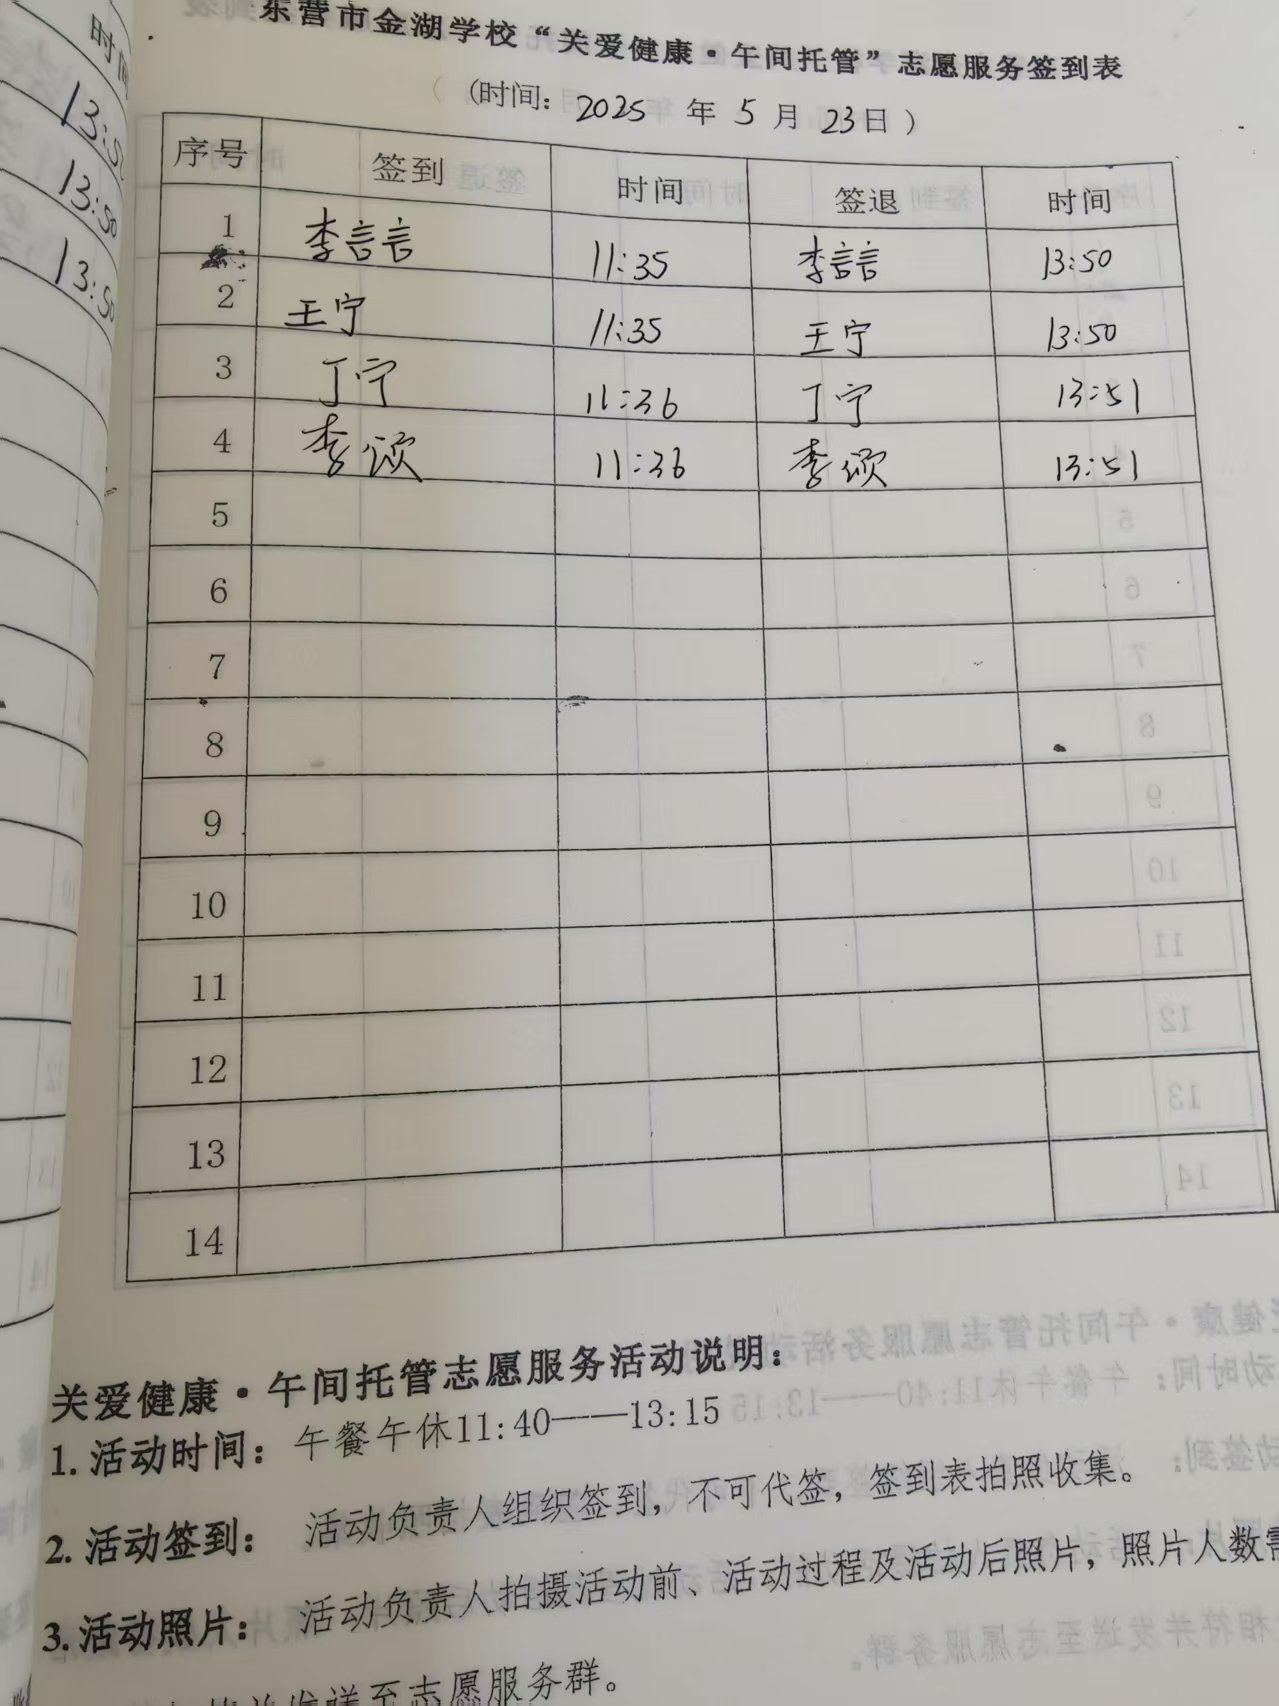 东营市金湖学校“关爱健康·午间托管”志愿服务签到表
(时间: 2025 年 5 月 23日)
序号 签到 时间 签退 时间
1 李言言 11:35 李言言 13:50
2 王宁 11:35 王宁 13:50
3 丁宁 11:36 丁宁 13:51
4 李颂 11:36 李颂 13:51
5
6
7
8
9
10
11
12
13
14
关爱健康·午间托管志愿服务活动说明:
1. 活动时间: 午餐午休11:40——13:15
2. 活动签到: 活动负责人组织签到, 不可代签, 签到表拍照收集。
3. 活动照片: 活动负责人拍摄活动前、活动过程及活动后照片, 照片人数需
发送至志愿服务群。
时间
13:50
13:50
13:50